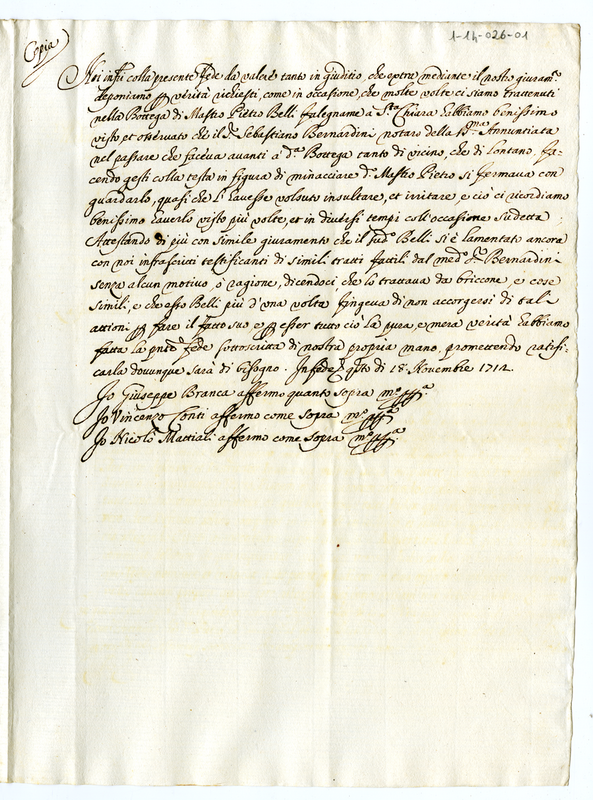 1-14-026-01
Copia
Noi infri colla presente fede da valere tanto in giuditio, che extra mediante il nostro giuramo
deponiamo p verità richiesti, come in occasione, che molte volte ci siamo trattenuti
nella Bottega di Mastro Pietro Belli falegname à Sta Chiara habbiamo benissimo
visto, et osservato che il Sr Sebastiano Bernardini notaro della SSma Annuntiata
nel passare che faceva avanti à da Bottega tanto di vicino, che di lontano, fa-
cendo gesti colla testa in figura di minacciare do Mastro Pietro si fermava con
guardarlo, quasi che l'havesse voluto insultare, et irritare, e ciò ci ricordiamo
benissimo haverlo visto più volte, et in diversi tempi coll'occasione sudetta
Attestando di più con simile giuramento che il sudo Belli si è lamentato ancora
con noi infrascritti testificanti di simili tratti fattili dal medo Sr Bernardini
senza alcun motivo, ò ragione, dicendoci che lo trattava da briccone, e cose
simili, e che esso Belli più d'una volta fingeva di non accorgersi di tali
attioni p fare il fatto suo e p esser tutto ciò la pura, e mera verità habbiamo
fatta la pnte fede sottoscritta di nostra propria mano, promettendo ratifi-
carla dovunque sarà di bisogno. In fede qto dì 18. Novembre 1714.
Io Giuseppe Branca affermo quanto sopra mo ppa
Io Vincenzo Conti affermo come sopra mo ppa
Io Nicolò Mattioli affermo come sopra mo ppa